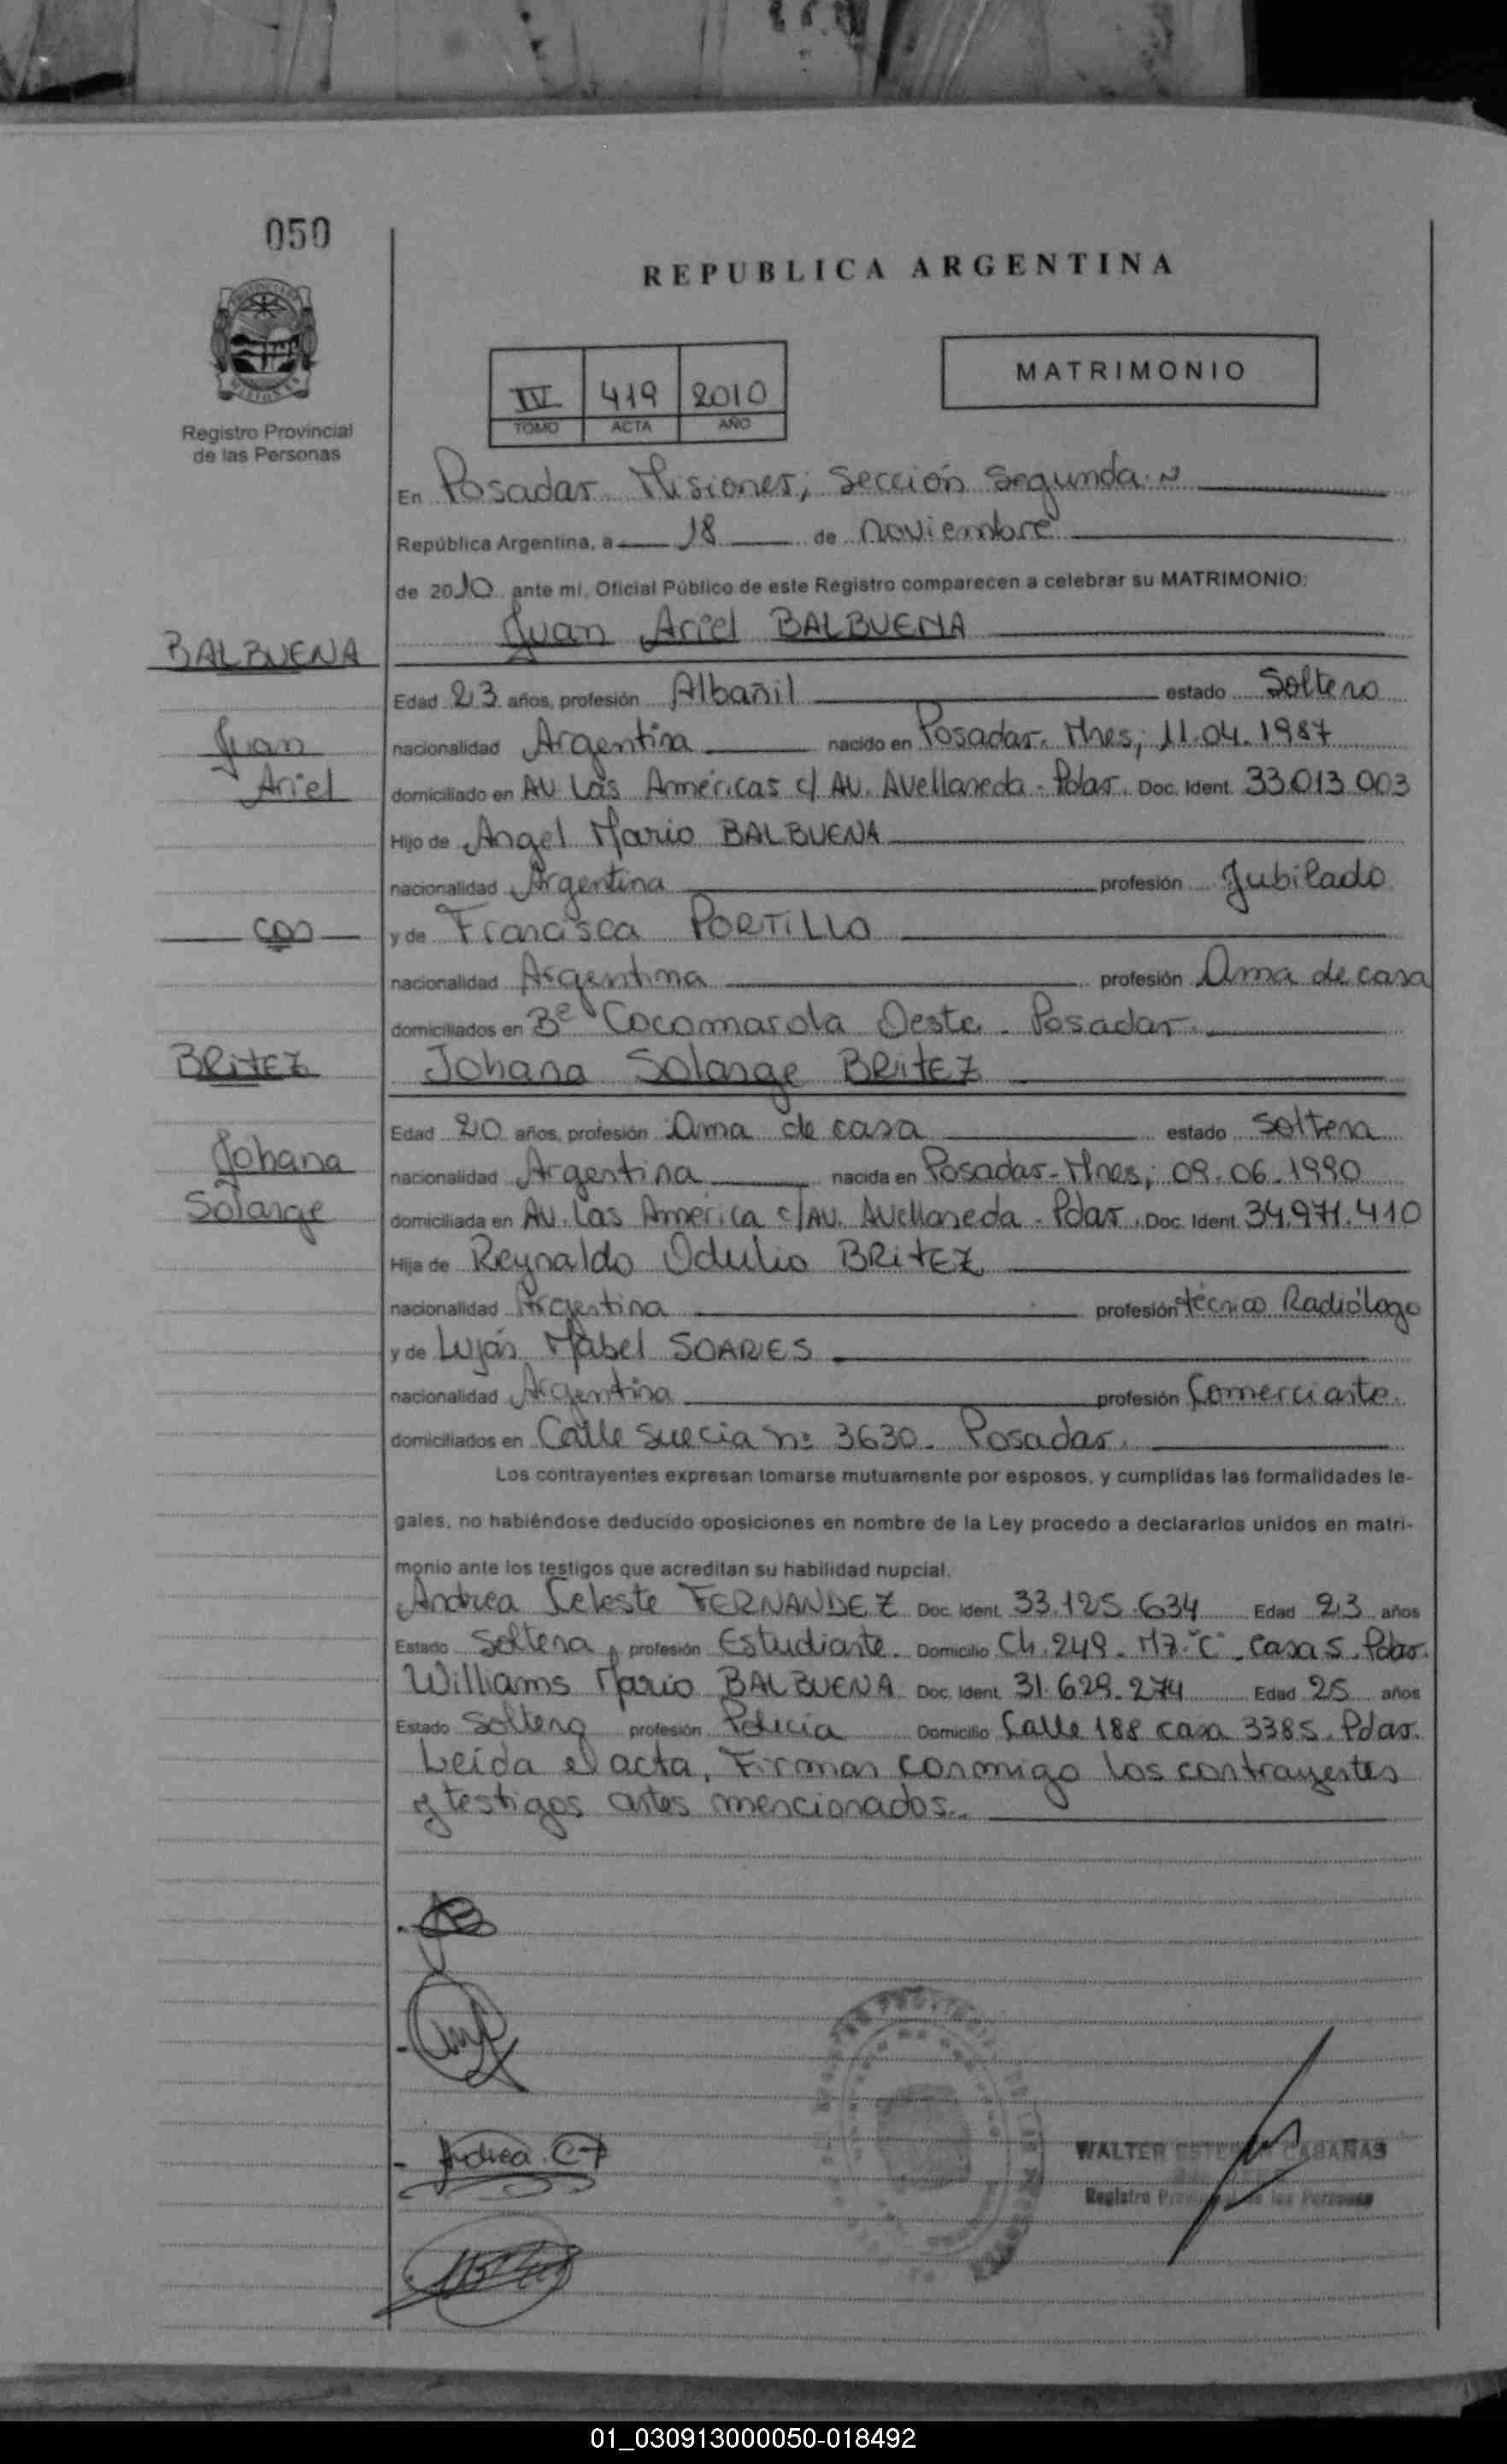 050
REPUBLICA ARGENTINA
IV 419 2010
TOMO ACTA AÑO
MATRIMONIO
Registro Provincial
de las Personas
En Posadas Misiones, Sección Segunda
República Argentina, a 18 de noviembre
de 2010 ante mí, Oficial Público de este Registro comparecen a celebrar su MATRIMONIO:
Juan Ariel BALBUENA
BALBUENA
Edad 23 años, profesión Albañil estado Soltero
Juan
nacionalidad Argentina nacido en Posadas. Mnes; 11.04.1987
Ariel
domiciliado en AV. Las Américas c/ AV. Avellaneda - Pdas. Doc. Ident. 33.013.003
Hijo de Angel Mario BALBUENA
nacionalidad Argentina profesión Jubilado
con
y de Francisca PORTILLO
nacionalidad Argentina profesión Ama de casa
domiciliados en Bº Cocomarola Oeste - Posadas.
BRITEZ
Johana Solange BRITEZ
Edad 20 años, profesión Ama de casa estado Soltera
Johana
nacionalidad Argentina nacida en Posadas - Mnes; 09.06.1990
Solange
domiciliada en AV. Las América c/AV. Avellaneda - Pdas. Doc. Ident. 34.971.410
Hija de Reynaldo Odulio BRITEZ
nacionalidad Argentina profesión técnico Radiólogo
y de Luján Mabel SOARES
nacionalidad Argentina profesión Comerciante.
domiciliados en Calle Suecia nº 3630. Posadas.
Los contrayentes expresan tomarse mutuamente por esposos, y cumplidas las formalidades le-
gales, no habiéndose deducido oposiciones en nombre de la Ley procedo a declararlos unidos en matri-
monio ante los testigos que acreditan su habilidad nupcial.
Andrea Celeste FERNANDEZ Doc. Ident. 33.125.634 Edad 23 años
Estado Soltera, profesión Estudiante. Domicilio Ch. 249 - Mz. "C" - Casa 5. Pdas.
Williams Mario BALBUENA Doc. Ident. 31.629.274 Edad 25 años
Estado Soltero profesión Policía Domicilio Calle 188 casa 3385. Pdas.
Leída el acta, Firman conmigo los contrayentes
y testigos antes mencionados.
Andrea C F
WALTER CABAÑAS
Registro Provincial de las Personas
01_030913000050-018492